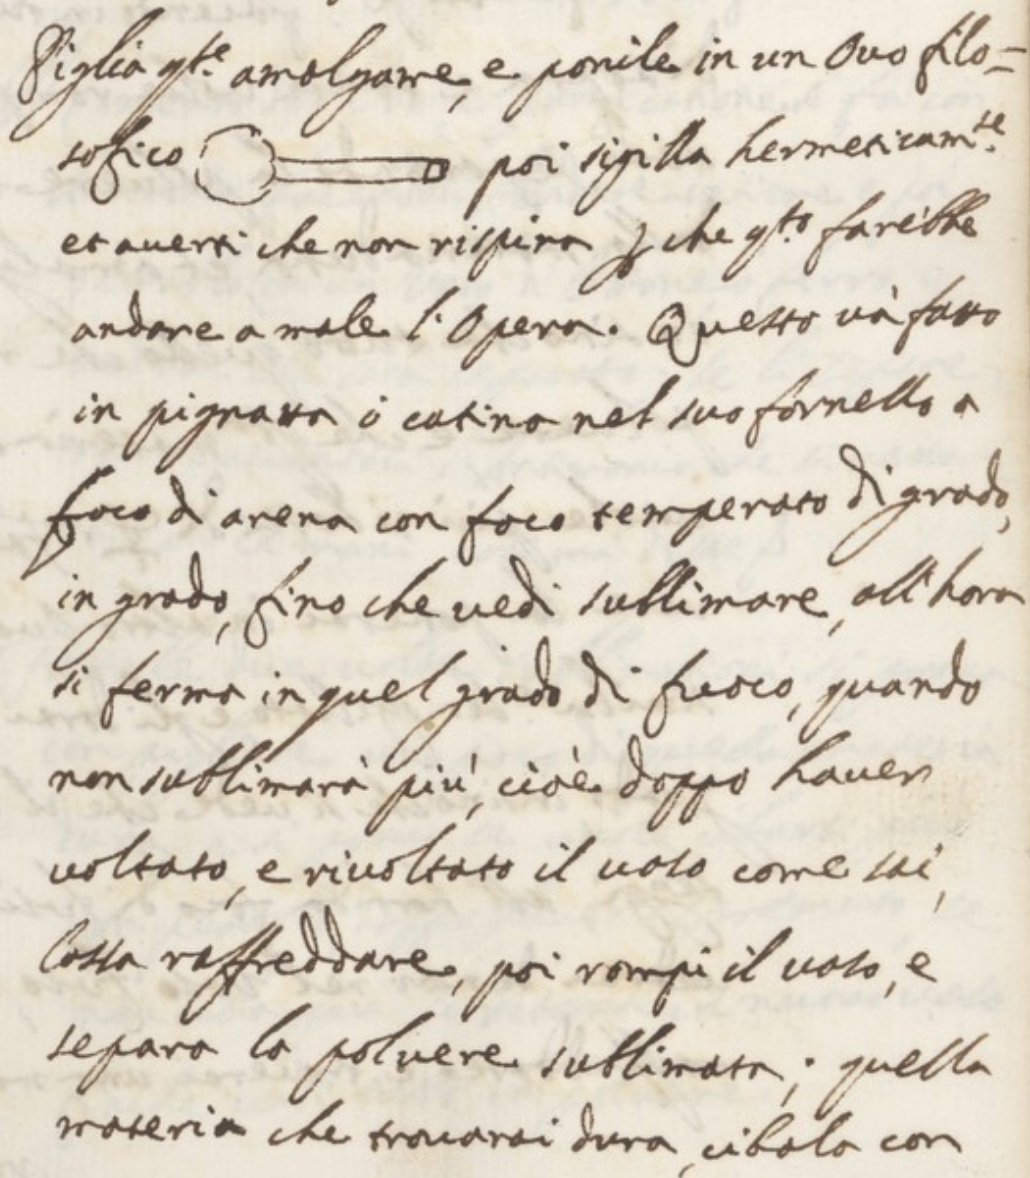 Piglia qte. amalgame, e ponile in un Ovo filo=
sofico poi sigilla hermeticamte.
et averti che non rispira p che qto. farebbe
andare a male l'Opera. Questo và fatto
in pignatta ò catino nel suo fornello a
foco di arena con foco temperato di grado,
in grado, fino che vedi sublimare, all'hora
si ferma in quel grado di fuoco, quando
non sublimarà più, cioè doppo haver
voltato, e rivoltato il vaso come sai,
lassa raffreddare, poi rompi il vaso, e
separa la polvere sublimata; quella
materia che trovarai dura, cibala con